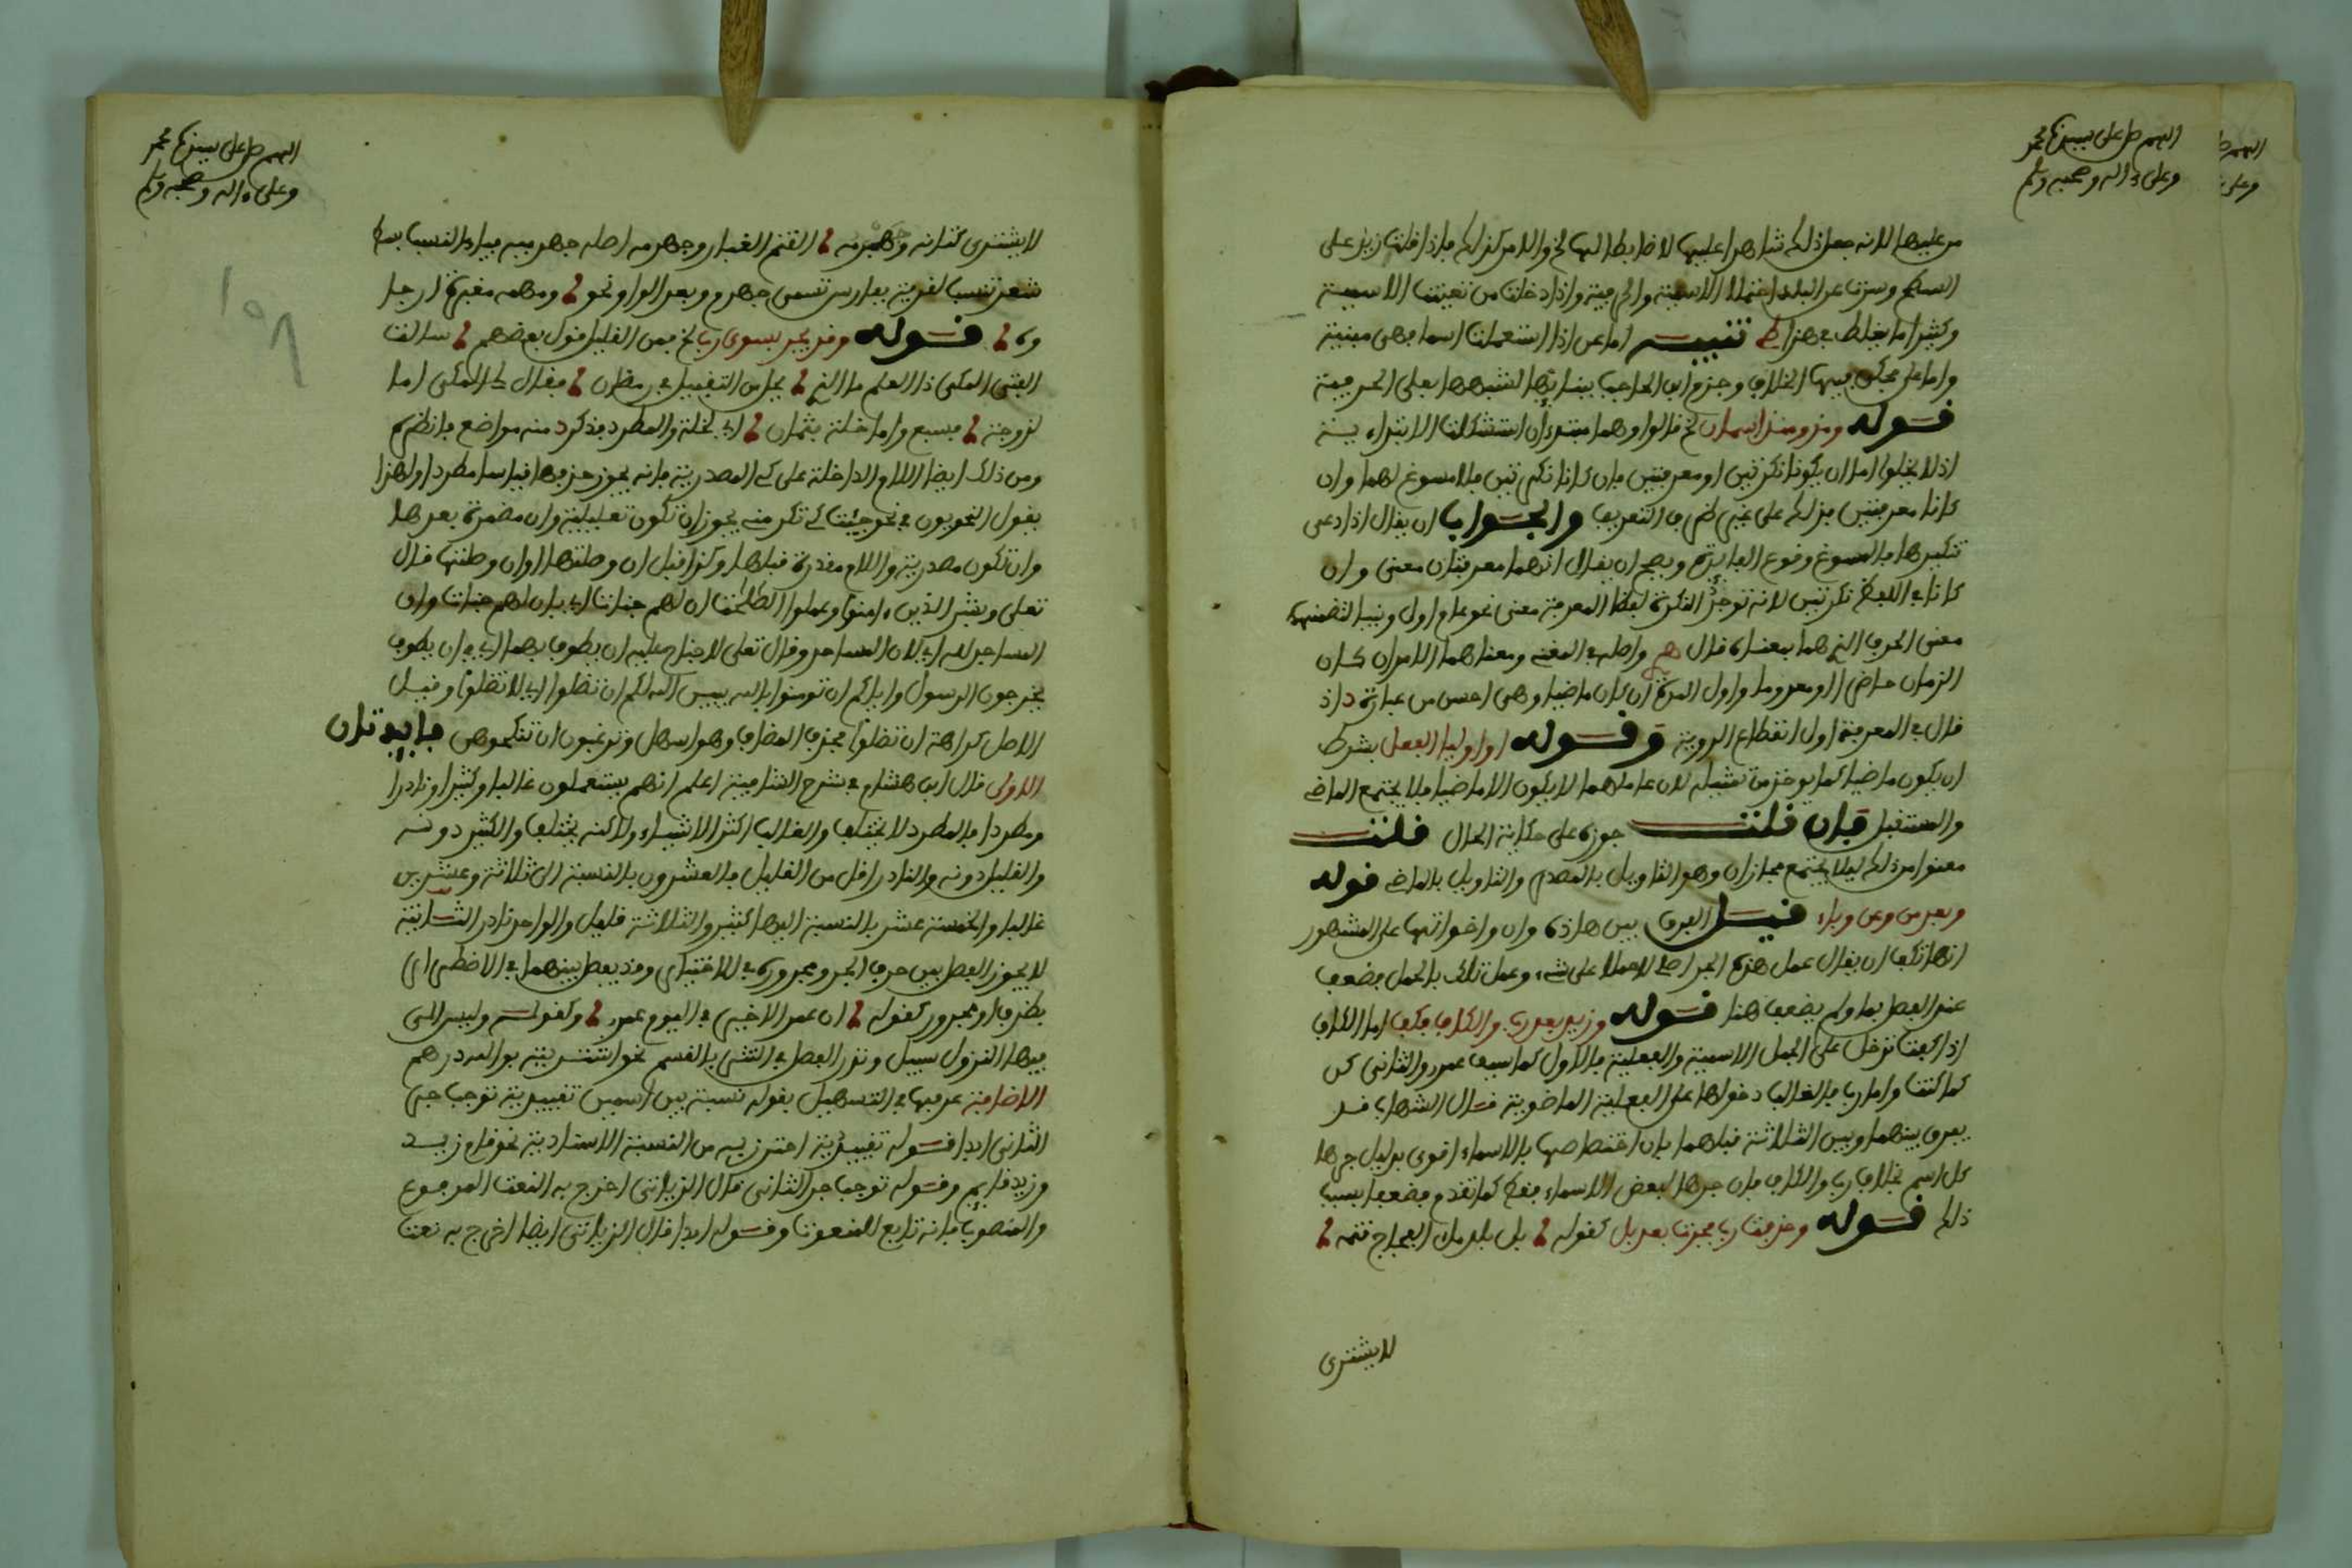 اللهم صل على سيدنا محمد
وعلى ءاله وصحبه وسلم
من عليها لانه جعل ذلك شاهدا عليها لا ضابطا لها لخ والامر كذلك فاذا قلت زيد على
السطح وسرت عن البلد احتملا الاسمية والحرفية واذا دخلت من تعينت الاسمية
وكثيرا ما يغلط في هذا تنبيه اما عن اذا استعملت اسما فهي مبنية
واما على فحكى فيها الخلاف وجزم ابن الحاجب ببنائها لشبهها بعلى الحرفية
قوله ومذ ومنذ اسمان لخ قالوا وهما مبتدءان استشكلت الابتداءية
اذ لا يخلوا اما ان يكونا نكرتين او معرفتين فان كانا نكرتين فلا مسوغ لهما وان
كانا معرفتين فذلك على غير طريق التعريف والجواب ان يقال اذا ادعى
تنكيرها فالمسوغ وقوع الفائدة ويصح ان يقال انهما معرفتان معنى وان
كانا في اللفظ نكرتين لانه توجد النكرة لفظا المعرفة معنى نحو عام اول وبنيا لتضمنهما
معنى الحرف الذي هما بمعناه قال واصله في المغني ومعناهما الامدان كان
الزمان حاضرا او معدودا واول المدة ان كان ماضيا وهي احسن من عبارة اذ
قال في المعرفة اول انقطاع الروية وقوله او اوليا الفعل بشرط
ان يكون ماضيا كما يوخذ من تمثيله لان عاملهما لا يكون الا ماضيا فلا يجتمع الماضي
والمستقبل فان قلت جوزه على حكاية الحال قلت
منعوا من ذلك ليلا يجتمع مجازان وهو التاويل بالمصدر والتاويل بالماضي قوله
وبعد من وعن وباء قيل الفرق بين هاذه وان واخواتها على المشهور
انها تكف ان يقال عمل هذه الجر اصلا لا حملا على شيء وعمل تلك بالحمل فضعف
عند الفصل بما ولم يضعف هنا قوله وزيد بعد رب والكاف فكف اما الكاف
اذا كفت تدخل على الجمل الاسمية والفعلية فالاول كما سيف عمرو والثاني كن
كما كنت واما رب فالغالب دخولها على الفعلية الماضوية قال الشهاب قد
يفرق بينهما وبين الثلاثة قبلهما بان اختصاصها بالاسماء اقوى بدليل جرها
كل اسم بخلاف رب والكاف فان جرها لبعض الاسماء فقط كما تقدم فضعفا بسبب
ذلك قوله وحذفت رب فجرت بعد بل كقوله بل بلد ملء الفجاج قتمه
لا يشترى
اللهم صل على سيدنا محمد
وعلى ءاله وصحبه وسلم
لا يشترى كتانه وجهرمه القتم الغبار وجهرمه اصله جهرميه بياء النسب
شعر تنسب لقرية بفارس تسمى جهرم وبعد الواو نحو ومهمه مغبرة ارجاؤ
ه قوله وقد يجر بسوى رب لخ فمن القليل قول بعضهم سالت
الفتى المكي ذا العلم ما الذي يحل من التقبيل في رمضان فقال لي المكي اما
لزوجة فسبع واما خلة فثمان اي لخلة والمطرد فذكر منه مواضع فانظره
ومن ذلك ايضا اللام الداخلة على كي المصدرية فانه يجوز حذفها قياسا مطردا ولهذا
يقول النحويون في نحو جئت كي تكرمني يجوز ان تكون تعليلية وان مضمرة بعدها
وان تكون مصدرية واللام مقدرة قبلها وكذا قبل ان وصلتها او ان وصلتها قال
تعلى وبشر الذين ءامنوا وعملوا الصلحت ان لهم جنات اي بان لهم جنات وان
المساجد لله اي لان المساجد وقال تعلى لا جناح عليه ان يطوف بهما اي في ان يطوف
يخرجون الرسول واياكم ان تومنوا بالله يبين الله لكم ان تضلوا اي لا تضلوا وقيل
الاصل كراهة ان تضلوا فحذف المضاف وهو اسهل وترغبون ان تنكحوهن فايدتان
الاولى قال ابن هشام في شرح الشافية اعلم انهم يستعملون غالبا وكثيرا ونادرا
ومطردا فالمطرد لا يختلف والغالب اكثر الاشياء ولاكنه يختلف والكثير دونه
والقليل دونه والنادر اقل من القليل فالعشرون بالنسبة الى ثلاثة وعشرين
غالبا والخمسة عشر بالنسبة اليها كثير والثلاثة قليل والواحد نادر الثانية
لا يجوز الفصل بين حرف الجر ومجروره في الاختيار وقد يفصل بينهما في الاضطرار
بظرف او مجرور كقوله ان عمرا لا خير في اليوم عمرو وكقوله وليس الى
منها النزول سبيل وندر الفصل في النثر بالقسم نحو اشتريته بوالله درهم
الاضافة عرفها في التسهيل بقوله نسبة بين اسمين تقييدية توجب جر
الثاني ابدا قوله تقييدية احترز به من النسبة الاسنادية نحو قام زيد
وزيد قايم وقوله توجب جر الثاني قال الزياتي اخرج به النعت المرفوع
والمنصوب فانه تابع للمنعوت وقوله ابدا قال الزياتي ايضا اخرج به نعت